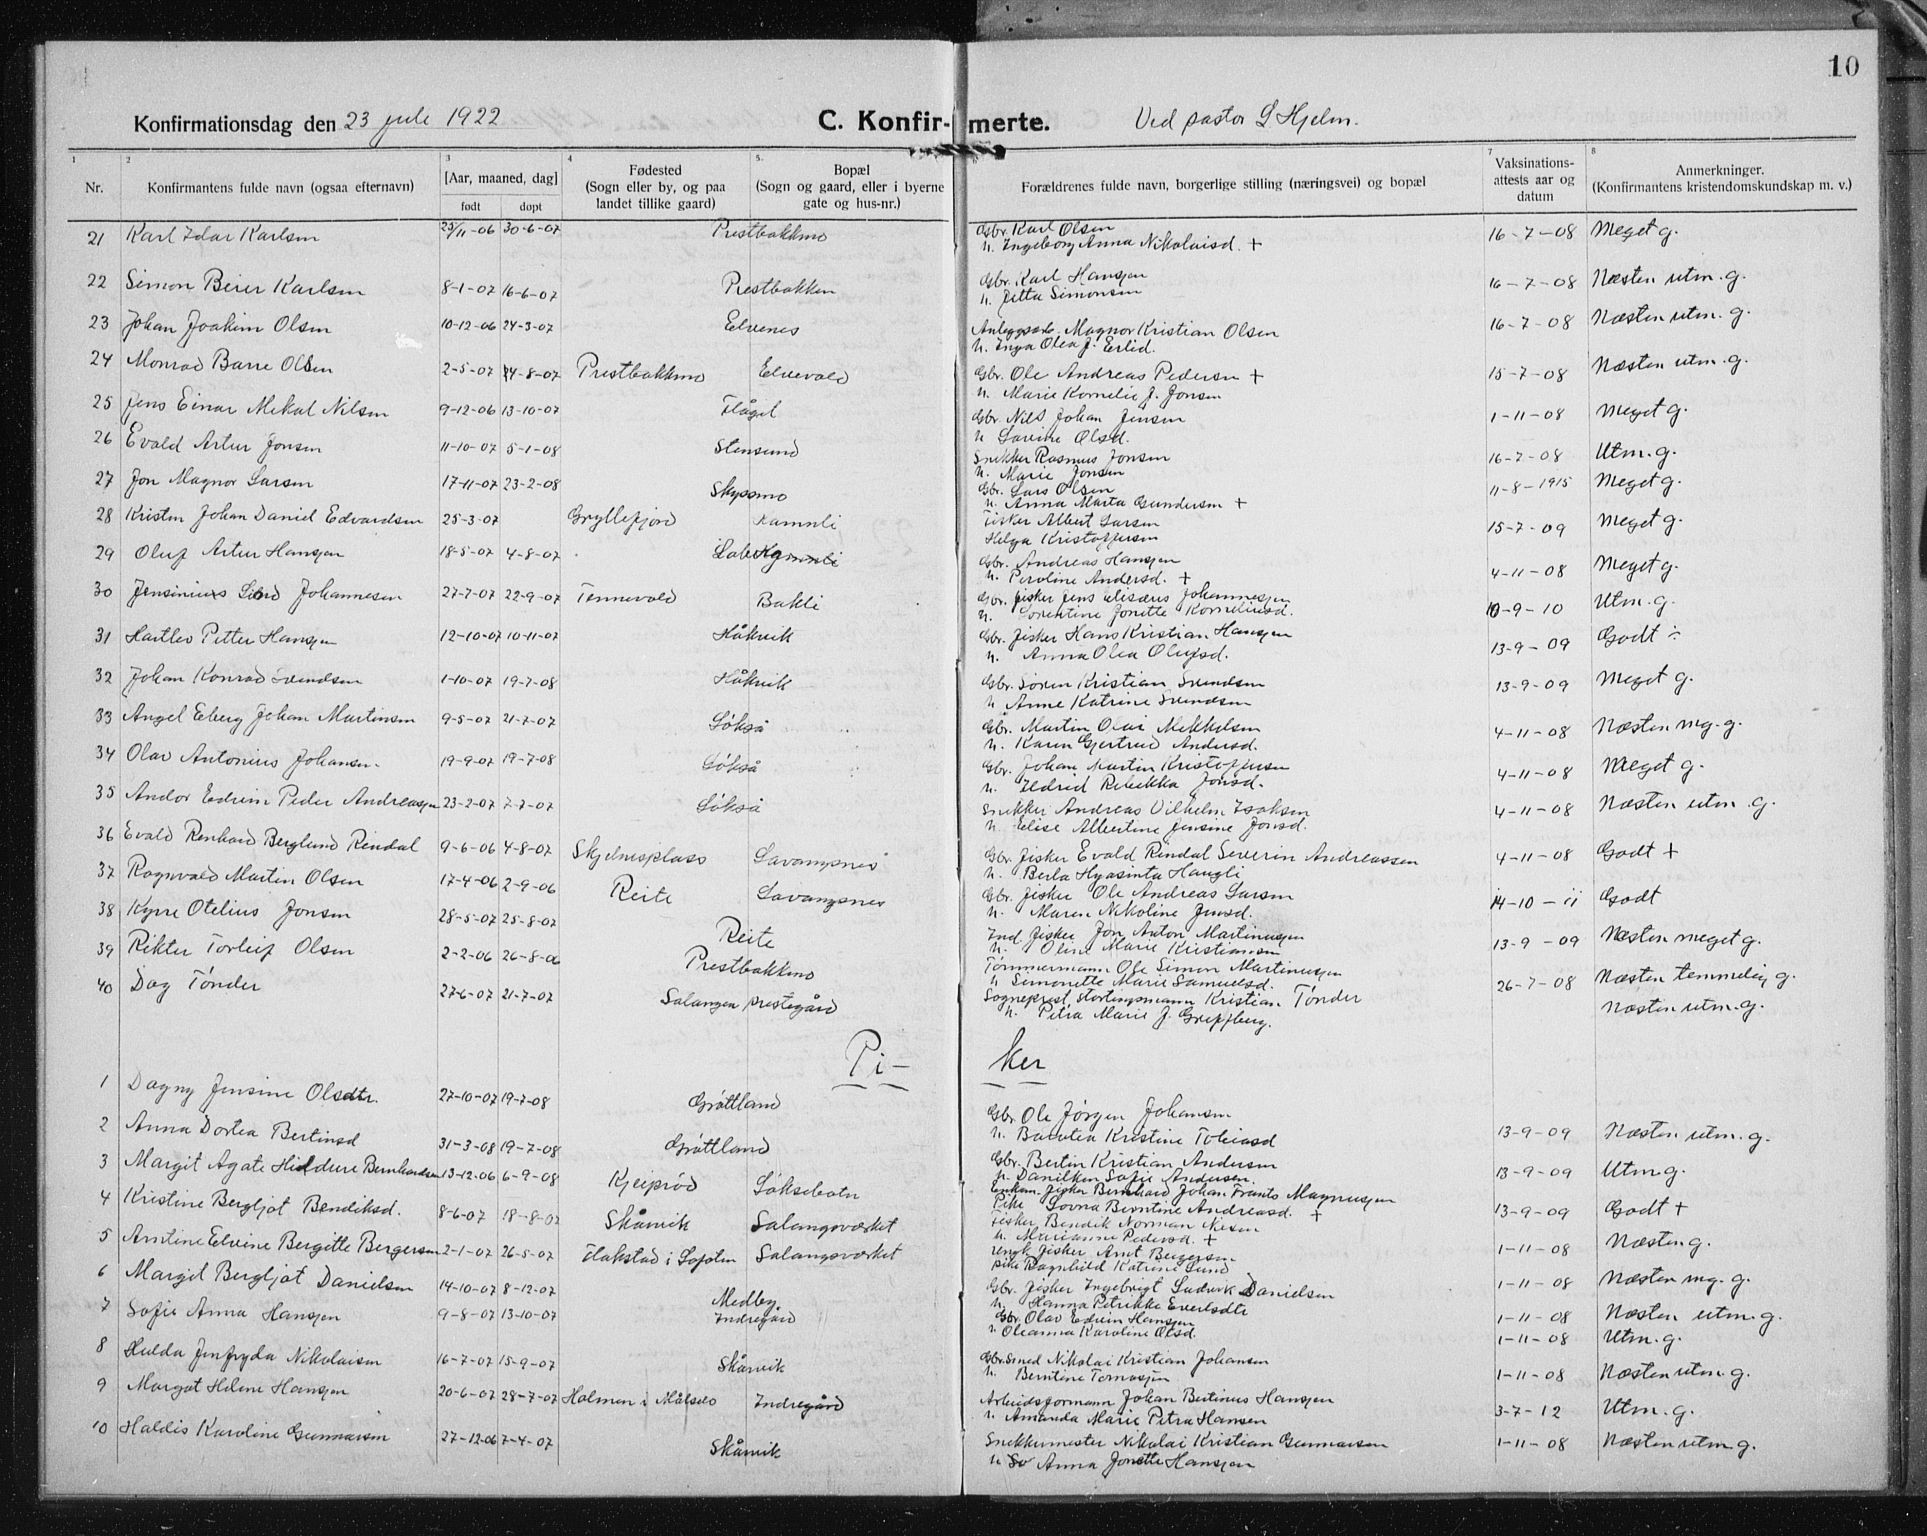 10
Konfirmationsdag den 23 juli 1922 C. Konfir-merte. Ved pastor S Hjelm.
1 2 3 4 5. 7 8
Nr. Konfirmantens fulde navn (ogsaa efternavn) [Aar, maaned, dag] født døpt Fødested (Sogn eller by, og paa landet tillike gaard) Bopæl (Sogn og gaard, eller i byerne gate og hus-nr.) Forældrenes fulde navn, borgerlige stilling (næringsvei) og bopæl Vaksinations-attests aar og datum Anmerkninger. (Konfirmantens kristendomskundskap m. v.)
21 Karl Idar Karlsen 25/11-06 30-6-07 Prestbakkmo Gbr. Karl Olsen 16-7-08 Meget g.
h. Ingeborg Anna Nikolaisd. +
22 Simon Beier Karlsen 8-1-07 16-6-07 Prestbakken Gbr. Karl Hansen 16-7-08 Næsten utm. g.
h. Jetta Simonsen
23 Johan Joakim Olsen 10-12-06 24-3-07 Elvenes Anleggsarb. Magnor Kristian Olsen 16-7-08 Næsten utm. g.
h. Inga Olea J. Erlid.
24 Monrad Barre Olsen 2-5-07 4-8-07 Prestbakkmo Elvevold Gbr. Ole Andreas Pedersen + 15-7-08 Næsten utm. g.
h. Marie Kornelie J. Jonsen
25 Jens Einar Mekal Nilsen 9-12-06 13-10-07 Flågel Gbr. Nils Johan Jensen 1-11-08 Meget g.
h Lovine Olsd.
26 Evald Artur Jonsen 11-10-07 5-1-08 Stensund Snekker Rasmus Jonsen 16-7-08 Utm. g.
h. Marie Jonsen
27 Jon Magnor Larsen 17-11-07 23-2-08 Skyssmo Gbr. Lars Olsen 11-8-1915 Meget g.
h. Anna Marta Gundersen +
28 Kristen Johan Daniel Edvardsen 25-3-07 Gryllefjord Kamnli Fisker Albert Larsen 15-7-09 Meget g.
Helga Kristoffersen
29 Oluf Artur Hansen 18-5-07 4-8-07 Gbr. Andreas Hansen 4-11-08 Meget g.
h. Peroline Andersd. +
30 Jensinius Johannesen 27-7-07 22-9-07 Tennevold Bakli Gbr. fisker Jens Elisæus Johannesen 10-9-10 Utm. g.
h. Lorentine Jonette Korneliusd.
31 Hartlev Petter Hansen 12-10-07 10-11-07 Håkvik Gbr. fisker Hans Kristian Hansen 13-9-09 Godt ÷
h. Anna Olea Olufsd.
32 Johan Konrad Svendsen 1-10-07 19-7-08 Håkvik Gbr. Søren Kristian Svendsen 13-9-09 Meget g.
h Anne Katrine Svendsen
33 Angel Eberg Johan Martinsen 9-5-07 21-7-07 Løkså Gbr. Martin Olai Mekkelsen 4-11-08 Næsten mg. g.
h. Karen Gjertrud Andersd.
34 Olav Antonius Johansen 19-9-07 19-7-08 Løkså Gbr. Johan Martin Kristoffersen 4-11-08 Meget g.
h. Ildrid Rebekka Jonsd.
35 Andor Edvin Peder Andreassen 23-2-07 7-7-07 Løkså Snekker Andreas Vilhelm Isaksen 4-11-08 Næsten utm. g.
h Elise Albertine Jensine Jonsd.
36 Evald Renhard Berglund Rendal 9-6-06 4-8-07 Skjelnesplass Lavangsnes Gbr. fisker Evald Rindal Severin Andreassen 4-11-08 Godt +
h. Berla Hyasinta Haugli
37 Ragnvald Martin Olsen 17-4-06 2-9-06 Reite Lavangsnes Gbr. fisker Ole Andreas Larsen 14-10-11 Godt
h. Maren Nikoline Jensd.
38 Kyrre Otelius Jonsen 28-5-07 25-8-07 Reite Ind. fisker Jon Anton Martinussen 13-9-09 Næsten meget g.
h. Oline Marie Kristiansen
39 Rikter Torleif Olsen 2-2-06 26-8-06 Prestbakkmo Tømmermann Ole Simon Martinussen 26-7-08 Næsten temmelig g.
h Simonette Marie Samuelsd.
40 Dag Tønder 27-6-07 21-7-07 Salangen prestegård Sogneprest, Stortingsmann Kristian Tønder Næsten utm. g.
h. Petra Marie J. Greffberg.
Pi-ker
1 Dagny Jensine Olsdtr. 27-10-07 19-7-08 Grøttland Gbr Ole Jørgen Johansen 13-9-09 Næsten utm. g.
h. Barotea Kristine Tobiasd
2 Anna Dortea Bertinsd 31-3-08 19-7-08 Grøttland Gbr. Bertin Kristian Andersen 13-9-09 Utm g.
h. Danilken Sofie Andersen
3 Margit Agate Hildure Bernhardsen 13-12-06 6-9-08 Kjeiprød Løksebotn Enkem. fisker Bernhard Johan Frants Magnussen 13-9-09 Godt +
Pike Lovna Berntine Andreasd. +
4 Kristine Bergljot Bendiksd. 8-6-07 18-8-07 Skårvik Salangsverket Fisker Bendik Norman Nilsen 1-11-08 Næsten g.
h. Marianne Pedersd. +
5 Arntine Elvine Bergitte Bergersen 2-1-07 26-5-07 Flakstad i Lofoten Salangsverket Ungk. fisker Arnt Bergersen 1-11-08 Næsten mg. g.
pike Ragnhild Katrine Lund
6 Margit Bergljot Danielsen 14-10-07 8-12-07 Medby Gbr. fisker Ingebrigt Ludvik Danielsen 1-11-08 Næsten utm. g.
h. Hanna Petrikke Evertsdtr
7 Sofie Anna Hansen 9-8-07 13-10-07 Indregård Gbr. Olav Edvin Hansen 1-11-08 Utm. g.
h Oleanna Karoline Olsd.
8 Hulda Jenfryda Nikolaisen 16-7-07 15-9-07 Skårvik Gbr. Smed Nikolai Kristian Johansen 1-11-08 Næsten utm. g.
h. Berntine Tomassen
9 Margot Helene Hansen 20-6-07 28-7-07 Holmen i Målselv Indregård Arbeidsformann Johan Bertinus Hansen 3-7-12 Utm. g.
h. Amanda Marie Petra Hansen
10 Haldis Karoline Gunnarsen 27-12-06 7-4-07 Skårvik Snekkermester Nikolai Kristian Gunnarsen 1-11-08 Næsten utm. g.
h Anna Jonette Hansen